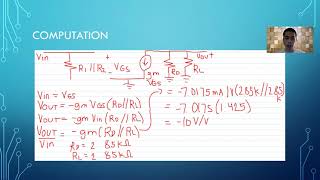 COMPUTATION
Vin
+
Vout
R1//R2
VGS
-
gm
VGS
RD
RL
Vin = VGS
Vout = -gm VGS (RD//RL)
Vout = -gm Vin (RD//RL)
Vout = -gm (RD//RL)
Vin
RD = 2.85kΩ
RL = 2.85kΩ
= -7.0175mA/V (2.85k//2.85
k)
= -7.0175 (1.425)
= -10 V/V